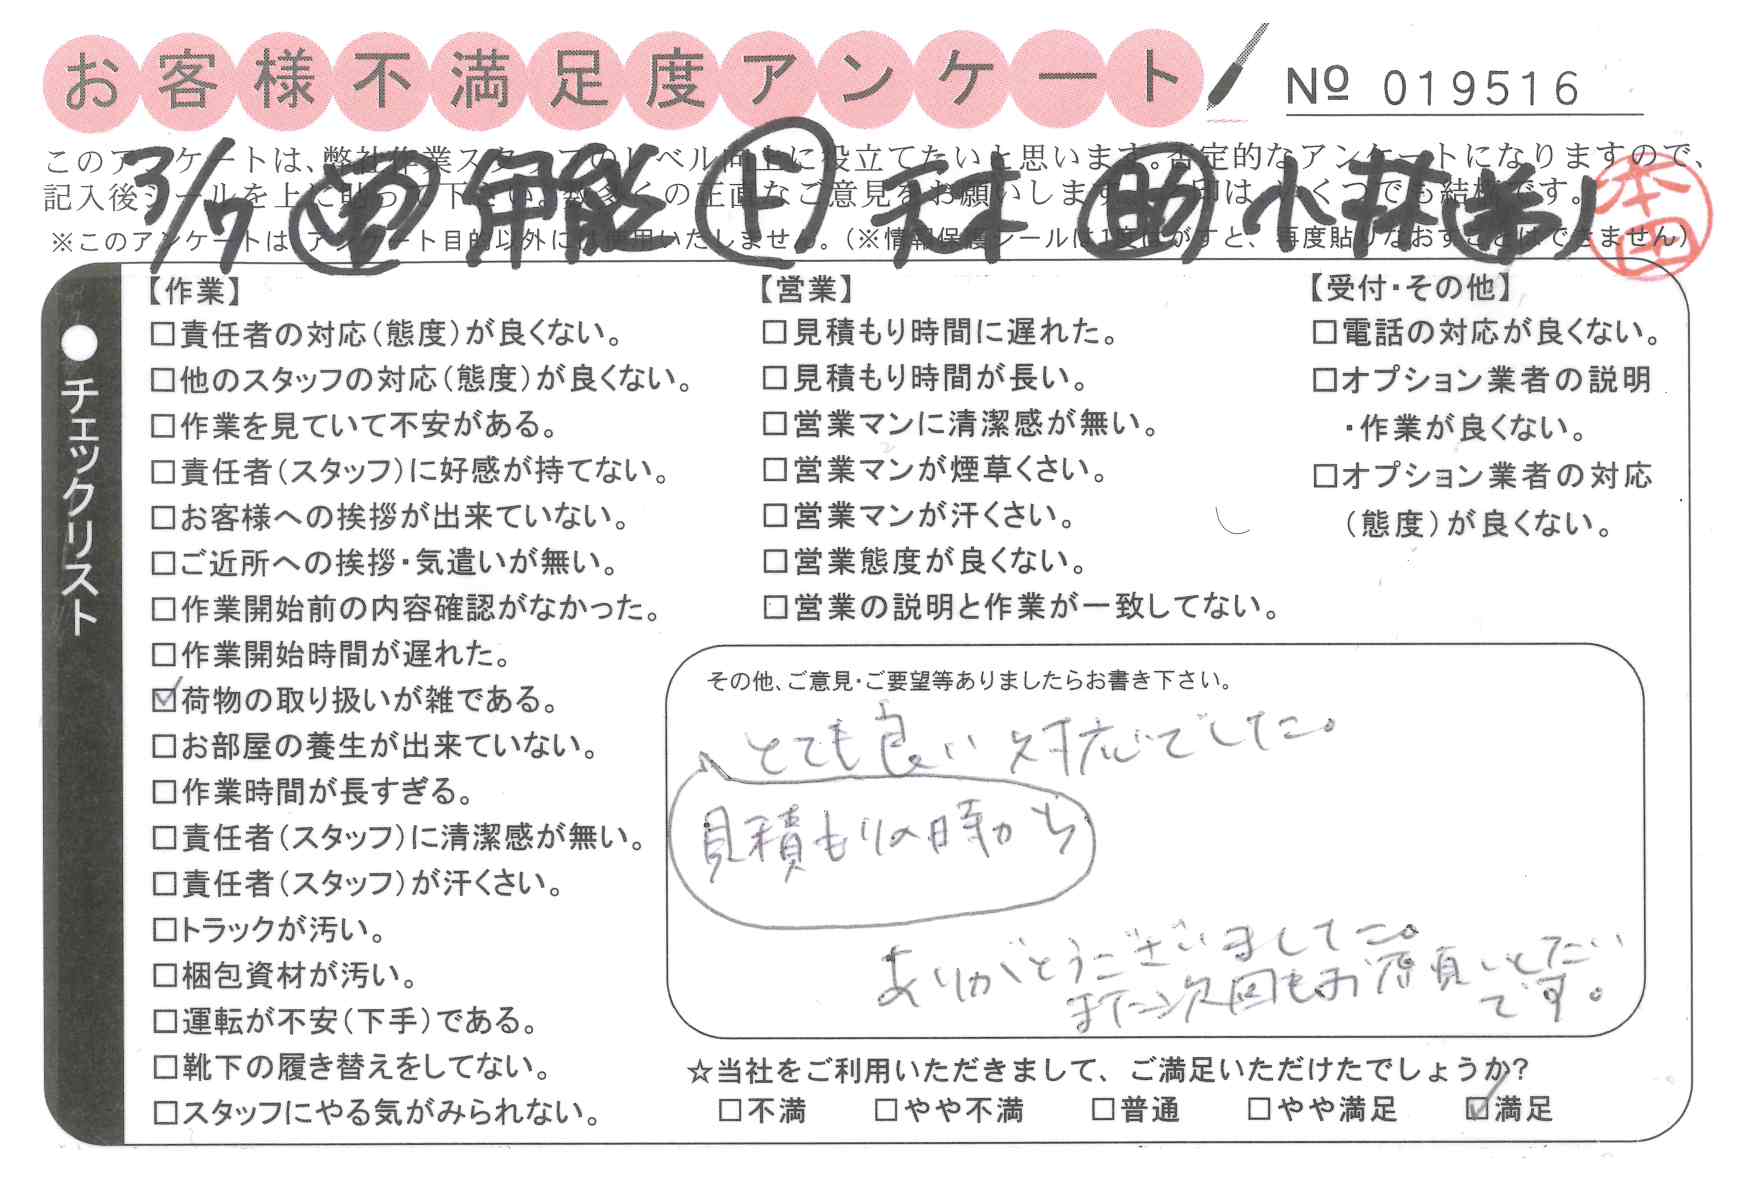 お客様不満足度アンケート
№ 019516
このアンケートは、弊社作業スタッフのレベル向上に役立てたいと思います。否定的なアンケートになりますので、
記入後シールを上に貼って下さい。数多くの正直なご意見をお願いします。 印は、いくつでも結構です。
※このアンケートは、アンケート目的以外には使用いたしません。(※情報保護シールは1度はがすと、再度貼りなおすことはできません)
3/7 伊影 下 天林 助 小林
本田
●チェックリスト
【作業】
□責任者の対応(態度)が良くない。
□他のスタッフの対応(態度)が良くない。
□作業を見ていて不安がある。
□責任者(スタッフ)に好感が持てない。
□お客様への挨拶が出来ていない。
□ご近所への挨拶・気遣いが無い。
□作業開始前の内容確認がなかった。
□作業開始時間が遅れた。
☑荷物の取り扱いが雑である。
□お部屋の養生が出来ていない。
□作業時間が長すぎる。
□責任者(スタッフ)に清潔感が無い。
□責任者(スタッフ)が汗くさい。
□トラックが汚い。
□梱包資材が汚い。
□運転が不安(下手)である。
□靴下の履き替えをしてない。
□スタッフにやる気がみられない。
【営業】
□見積もり時間に遅れた。
□見積もり時間が長い。
□営業マンに清潔感が無い。
□営業マンが煙草くさい。
□営業マンが汗くさい。
□営業態度が良くない。
□営業の説明と作業が一致してない。
【受付・その他】
□電話の対応が良くない。
□オプション業者の説明
・作業が良くない。
□オプション業者の対応
(態度)が良くない。
その他、ご意見・ご要望等ありましたらお書き下さい。
とても良い対応でした。
見積もりの時から
ありがとうございました。
また次回もお願いしたい
です。
☆当社をご利用いただきまして、ご満足いただけたでしょうか?
□不満 □やや不満 □普通 □やや満足 ☑満足